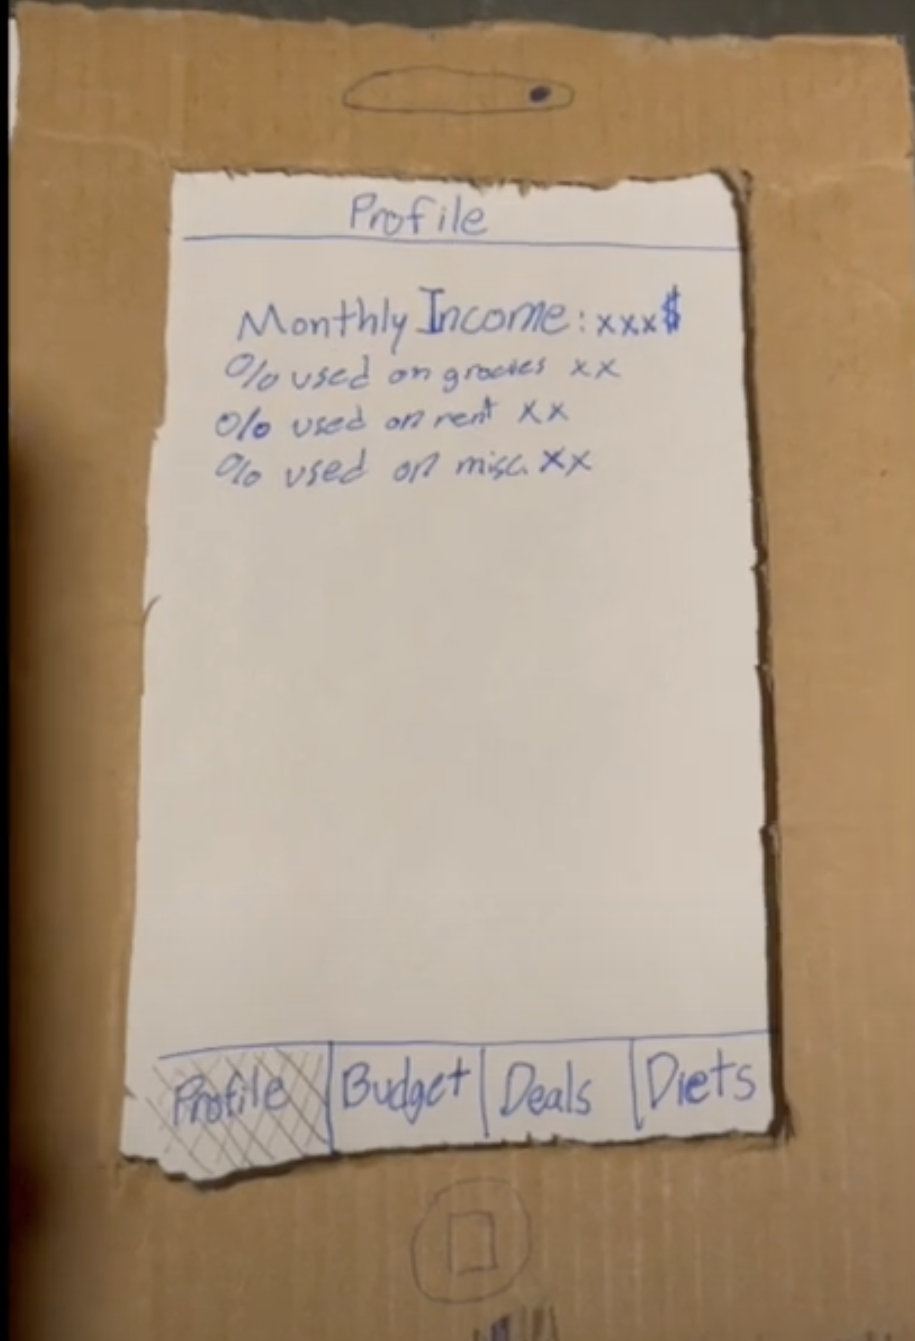 Profile
Monthly Income: xxx$
% used on grocies xx
% used on rent xx
% used on misc. xx
Profile Budget Deals Diets